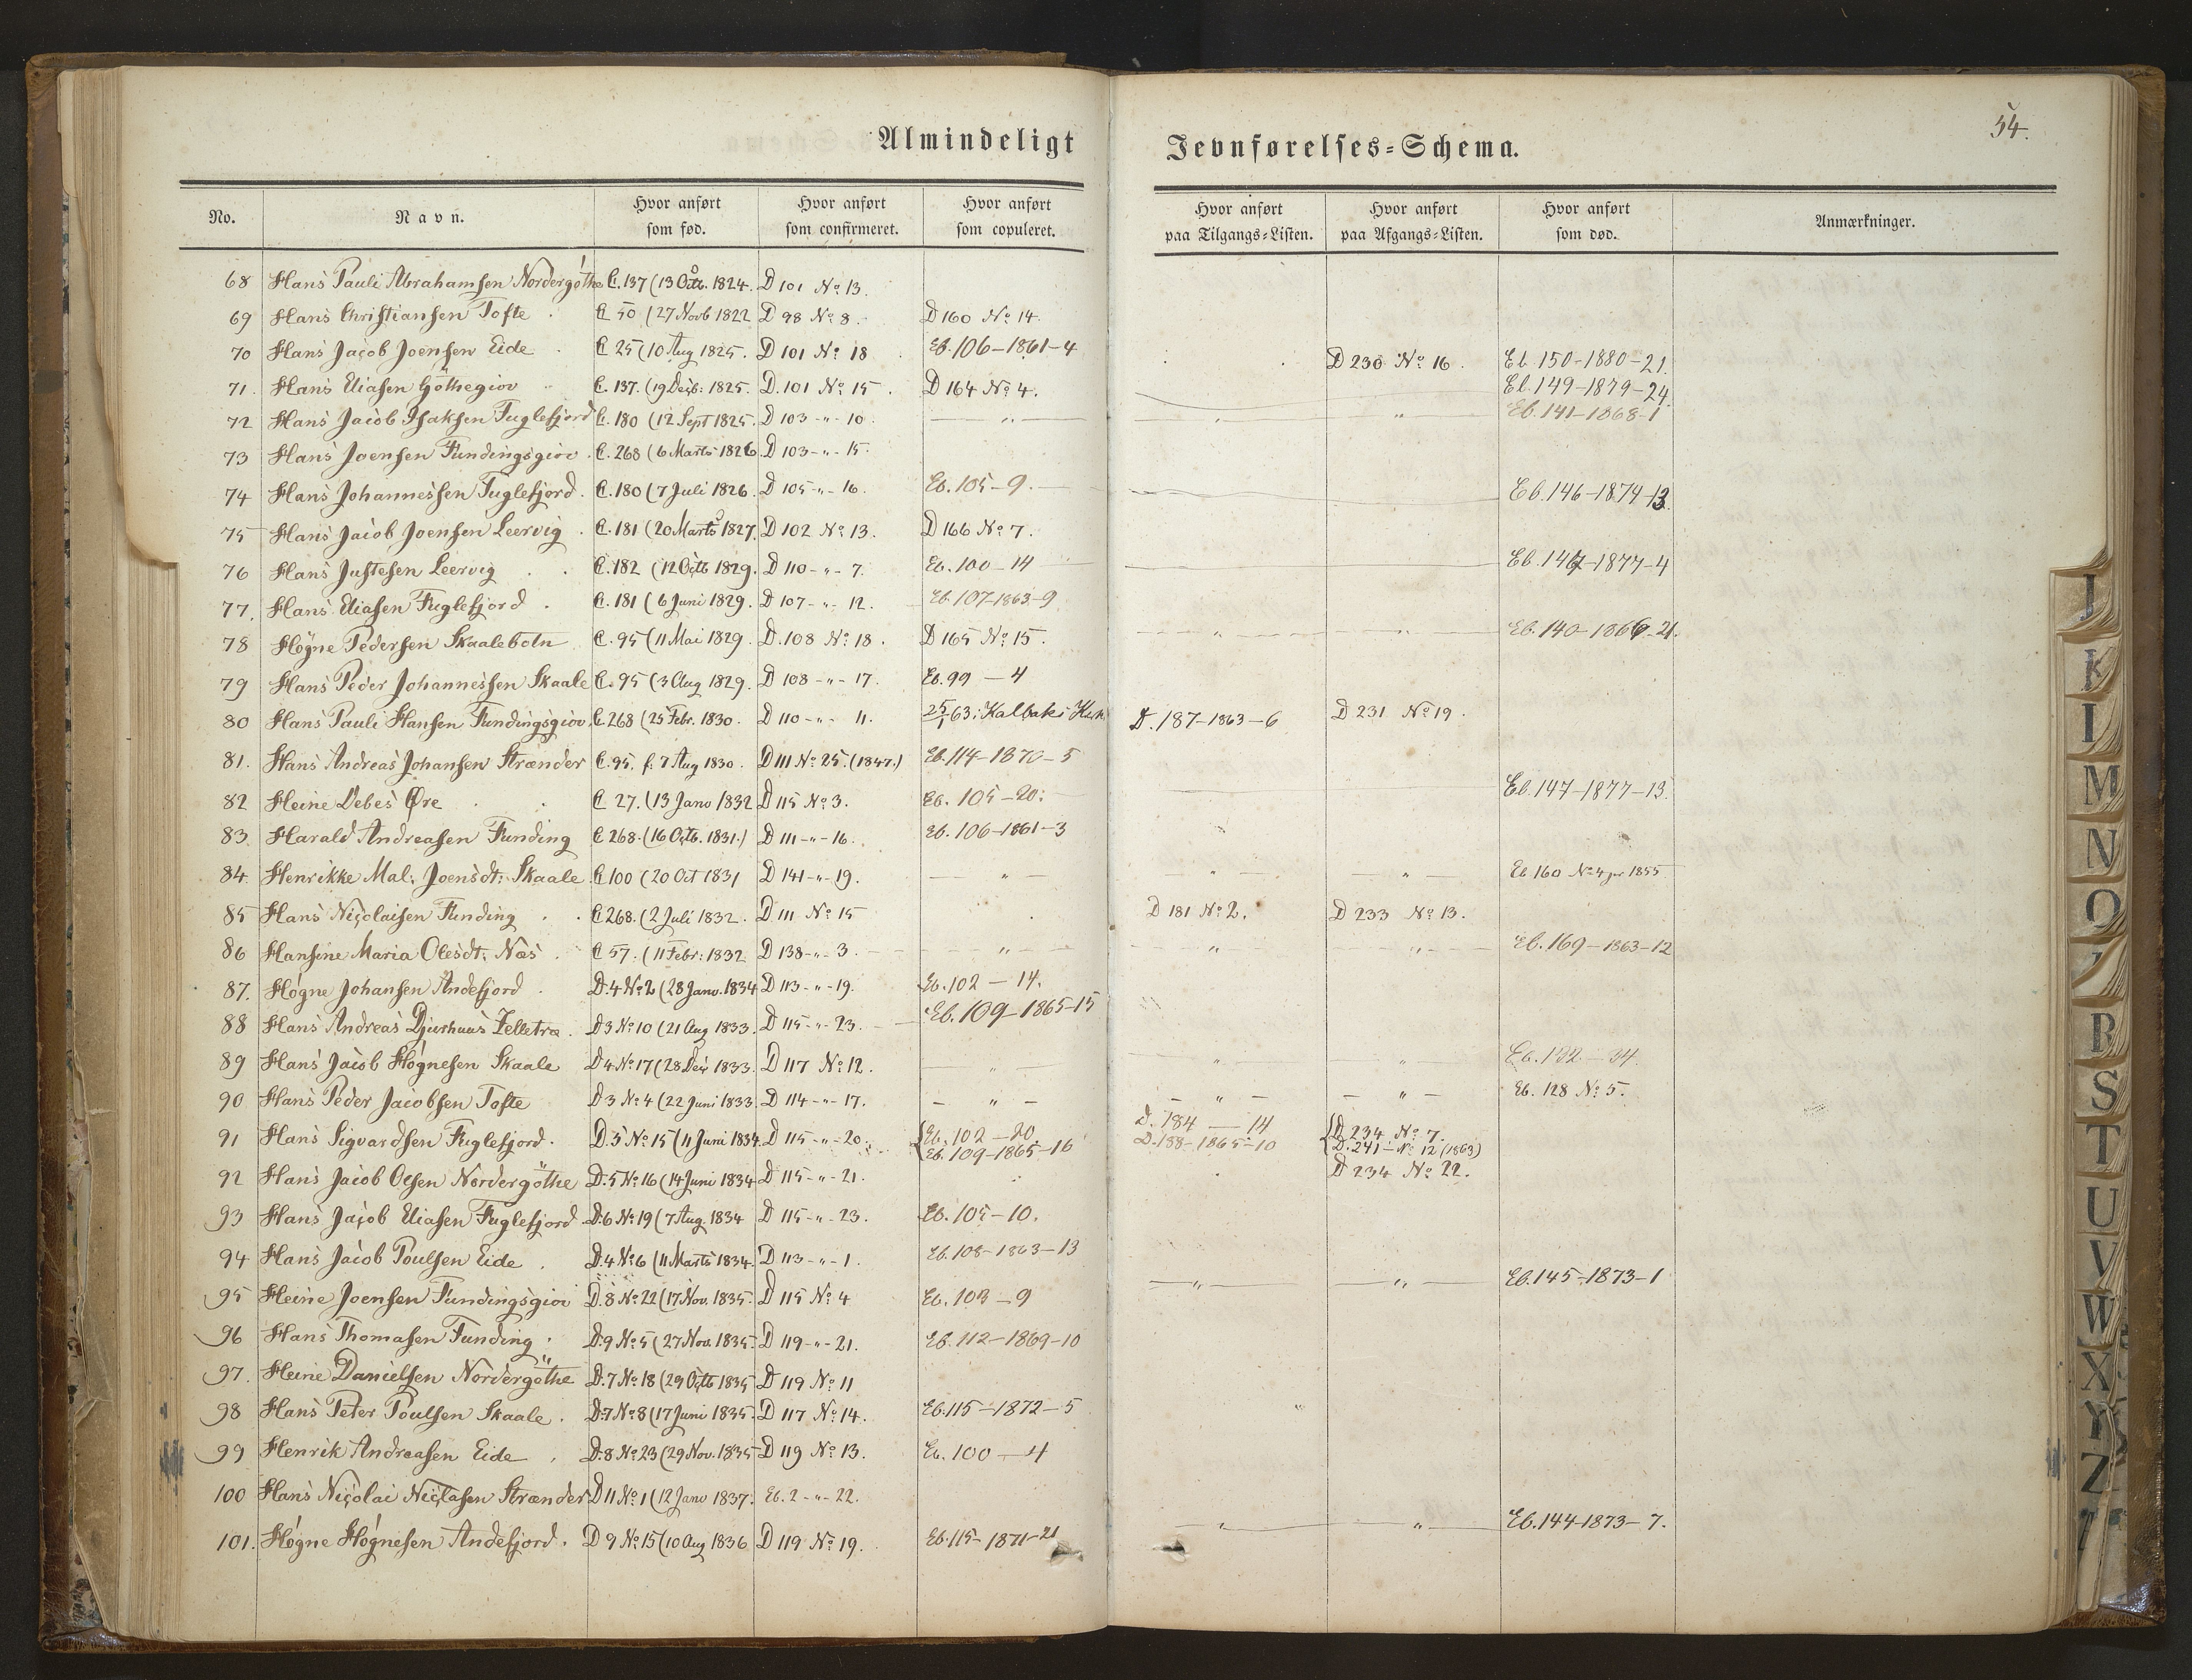 54.
Almindeligt Jevnførelses-Schema.
No. Navn. Hvor anført som fød. Hvor anført som confirmeret. Hvor anført som copuleret. Hvor anført paa Tilgangs-Listen. Hvor anført paa Afgangs-Listen. Hvor anført som død. Anmærkninger.
68 Hans Pauli Abrahamsen Nordergøthe C. 137 (13 Octb. 1824. D 101 No 13.
69 Hans Christiansen Tofte C 50 (27 Novb 1822 D 98 No 8. D 160 No 14.
70 Hans Jacob Joensen Eide C 25 (10 Aug 1825. D 101 No 18 Eb. 106-1861-4 D 230 No 16. Eb. 150-1880-21.
71. Hans Eliasen Gøthegiov C. 137. (19 Decb: 1825. D. 101 No 15 D 164 No 4. Eb. 149-1879-24.
72 Hans Jacob Isaksen Fuglefjord C. 180 (12 Sept 1825. D 103 -"- 10 — " — " " Eb. 141-1868-1
73 Hans Joensen Fundingsgiov C. 268 (6 Marts 1826. D 103 -"- 15.
74 Hans Johannessen Fuglefjord. C. 180 (7 Juli 1826. D 105 -"- 16. Eb. 105-9. Eb. 146-1874-13.
75 Hans Jacob Joensen Leervig C. 181 (20 Marts 1827. D 102 No 13. D 166 No 7.
76 Hans Justesen Leervig C. 182 (12 Octb 1829. D 110 -"- 7. Eb. 100-14 Eb. 147-1877-4
77. Hans Eliasen Fuglefjord C. 181 (6 Juni 1829. D 107 -"- 12. Eb. 107-1863-9
78 Høgne Pedersen Skaalebotn C. 95 (11 Mai 1829. D. 108 No 18. D 165 No 15. — " — " — Eb. 140-1866-21.
79 Hans Peder Johannessen Skaale C. 95 (3 Aug 1829. D 108 -"- 17. Eb. 99 — 4
80 Hans Pauli Hansen Fundingsgiov. C. 268 (25 Febr. 1830. D 110 -"- 11. 25/1 63 i Kalbaks Kirk D. 187-1863-6 D 231 No 19.
81. Hans Andreas Johansen Strænder C. 95. f. 7 Aug 1830. D 111 No 25. (1847.) Eb. 114-1870-5
82 Heine Debes Øre C 27. (13 Janv 1832 D 115 No 3. Eb. 105-20. Eb. 147-1877-13.
83. Harald Andreasen Funding C 268. (16 Octb. 1831.) D 111 -"- 16. Eb. 106-1861-3
84. Henrikke Mal: Joensdt: Skaale C 100 (20 Oct 1831 D 141 -"- 19. — " — " — " — Eb. 160 No 4 1855
85 Hans Nicolaisen Funding C 268. (2 Juli 1832. D 111 No 15 D 181 No 2. D 233 No 13.
86 Hansine Maria Olesdt: Næs C 57. (11 Febr: 1832 D 138 -"- 3. — " — " — " — Eb. 169-1863-12
87. Høgne Johansen Andefjord D. 4 No 2 (28 Janv. 1834 D 113 -"- 19. Eb. 102 — 14.
88 Hans Andreas Djurhuus Zelletræ D 3 No 10 (21 Aug 1833. D 115 -"- 23. Eb. 109-1865-15
89 Hans Jacob Høgnesen Skaale D 4 No 17 (28 Dec 1833. D 117 No 12. — " — " — " — Eb. 132 — 34.
90 Hans Peder Jacobsen Tofte D 3 No 4 (22 Juni 1833. D 114 -"- 17. — " — — " — — " — Eb. 128 No 5.
91 Hans Sigvardsen Fuglefjord. D. 5 No 15 (11 Juni 1834. D 115 -"- 20. Eb. 102 — 20. D. 184 — 14 D 234 No 7
Eb. 109-1865-16 D. 188-1865-10 D. 241 - No 12 (1863)
92 Hans Jacob Olesen Nordergøthe D. 5 No 16 (14 Juni 1834 D 115 -"- 21. D 234 No 22.
93 Hans Jacob Eliasen Fuglefjord D. 6 No 19 (7 Aug. 1834 D 115 -"- 23. Eb. 105-10.
94 Hans Jacob Poulsen Eide D. 4 No 6 (11 Marts 1834. D 113 -"- 1. Eb. 108-1863-13 — " — — " — Eb. 145-1873-1
95 Heine Joensen Fundingsgiov D. 8 No 22 (17 Nov. 1835. D 115 No 4 Eb. 103 — 9
96 Hans Thomasen Funding D. 9 No 5 (27 Nov. 1835. D 119 -"- 21. Eb. 112-1869-10
97. Heine Danielsen Nordergøthe D. 7 No 18 (29 Octb 1835 D 119 No 11
98 Hans Peter Poulsen Skaale D. 7 No 8 (17 Juni 1835. D 117 No 14. Eb. 115-1872-5
99 Henrik Andreasen Eide D. 8 No 23 (29 Nov. 1835 D 119 No 13. Eb. 100 — 4
100 Hans Nicolai Niclasen Strænder D 11 No 1 (12 Janv 1837. Eb. 2 -"- 22.
101. Høgne Høgnesen Andefjord. D 9 No 15 (10 Aug 1836 D 119 No 19. Eb. 115-1871-21 " — " — Eb. 144-1873-7.
J
K
L
M
N
O
R
S
T
U
V
W
X
Y
Z